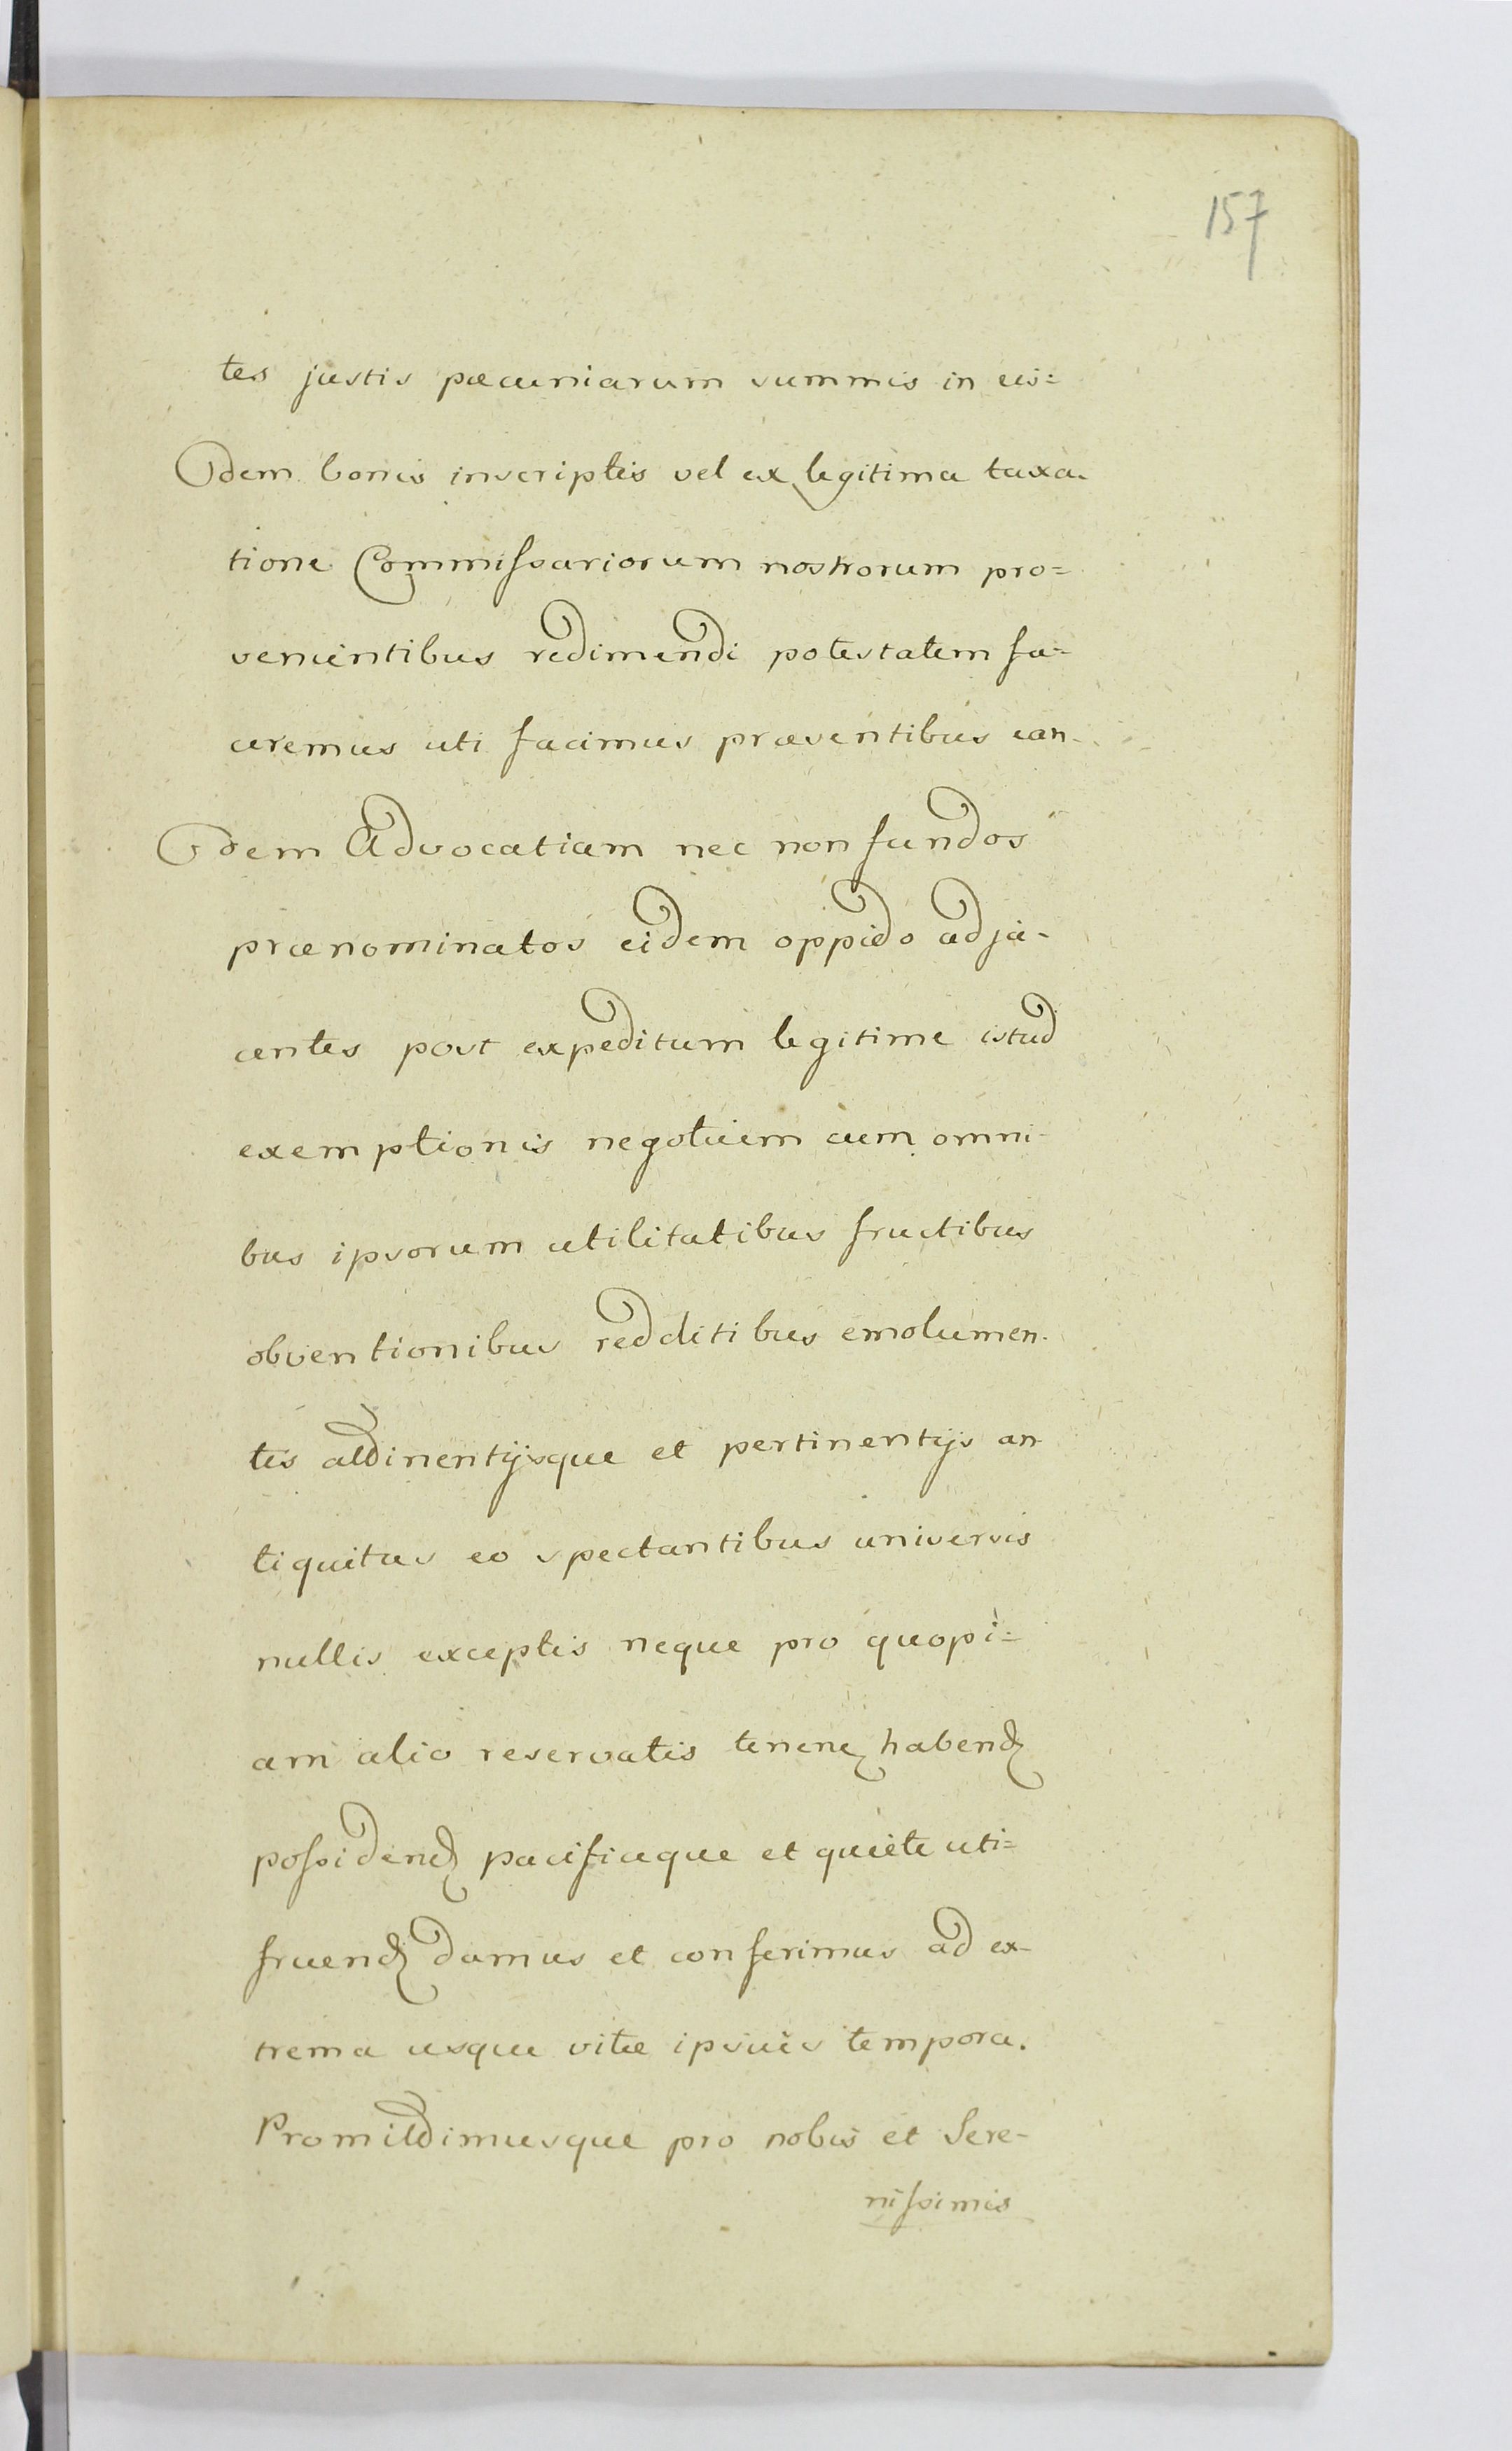 157
tes justis pæcuniarum summis in eis=
dem bonis inscriptis vel ex legitima taxa-
tione Commissariorum nostrorum pro=
venientibus redimendi potestatem fa=
ceremus uti facimus præsentibus ean-
dem Advocatiam nec non fundos
prænominatos eidem oppido adja-
centes post expeditum legitime istud
exemptionis negotium cum omni-
bus ipsorum utilitatibus fructibus
obventionibus redditibus emolumen-
tis attinentijsque et pertinentijs an
tiquitus eo spectantibus universis
nullis exceptis neque pro quopi=
am alio reservatis tenen habend
possidend pacificeque et quiete uti=
fruend damus et conferimus ad ex-
trema usque vitæ ipsius tempora.
Promittimusque pro nobis et Sere-
nissimis